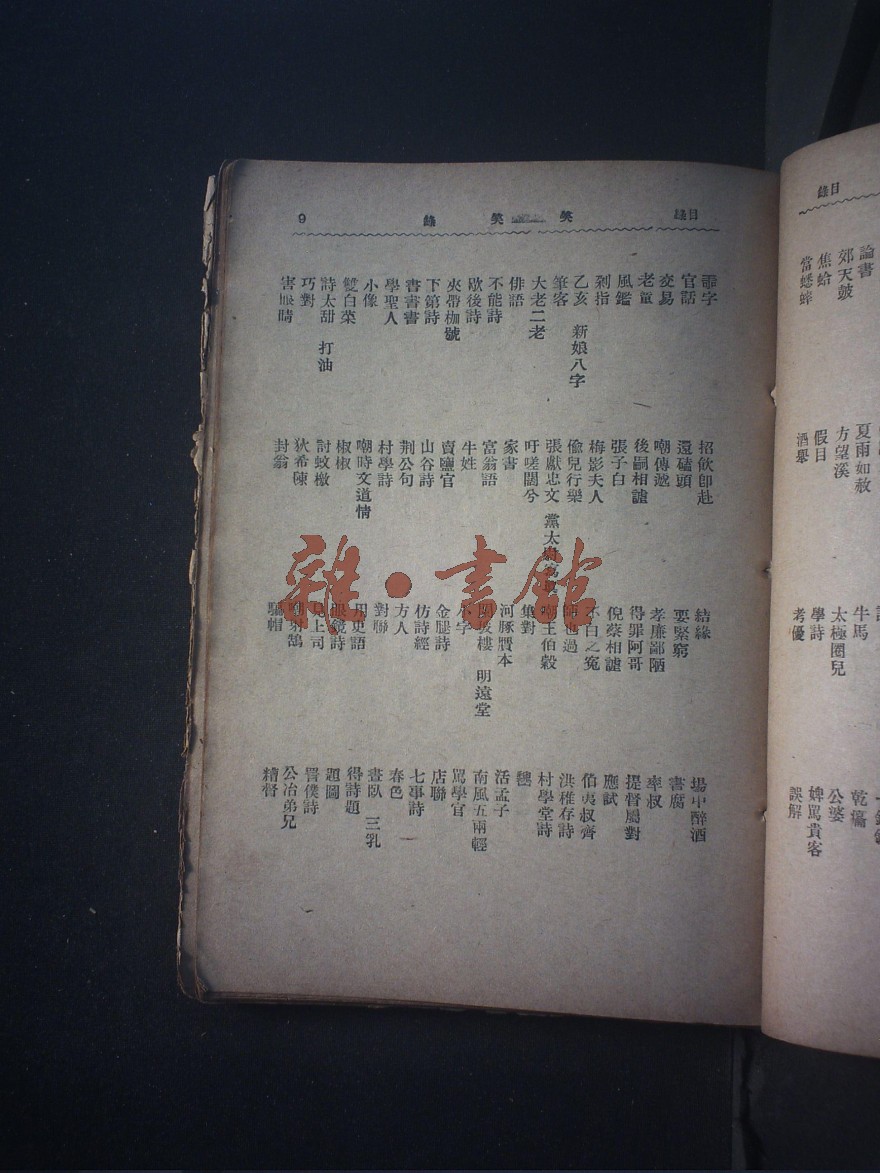 目錄 笑笑錄 9
噩字
官話
交易
老童
風鑑
剁指
乙亥 新娘八字
筆客
大老二老
俳語
不能詩
歇後詩
夾帶枷號
下第詩
書書書
學聖人
小像
雙白菜
詩太甜 打油
巧對
害眼睛
招飲卽赴
還磕頭
嘲傳遞
後嗣相謔
張子白
梅影夫人
偸兒行樂
張獻忠文
吁嗟闊兮
家書
富翁語
牛姓
賣鹽官
山谷詩
荆公句
村學詩
嘲時文道情
椒椒
討蚊檄
狄希陳
封翁
結緣
要緊窮
孝廉鄙陋
得罪阿哥
倪蔡相謔
不白之冤
師也過
嘲王伯穀
集對
河豚贋本
明遠堂
小字
金腿詩
仿詩經
方人
對聯
用吏語
眼鏡詩
見上司
嘲射鵠
騙帽
場中醉酒
書腐
率叔
提督屬對
應試
伯夷叔齊
洪稚存詩
村學堂詩
活孟子
南風五兩輕
罵學官
店聯
七事詩
春色
晝臥 三乳
得詩題
題圖
詈僕詩
公冶弟兄
糟督
雜·書館
目錄
論書
郊天皷
焦蛤
當蟋蟀
夏雨如赦
方望溪
假目
酒舉
牛馬
太極圈兒
學詩
考優
乾濕
公婆
婢罵貴客
誤解